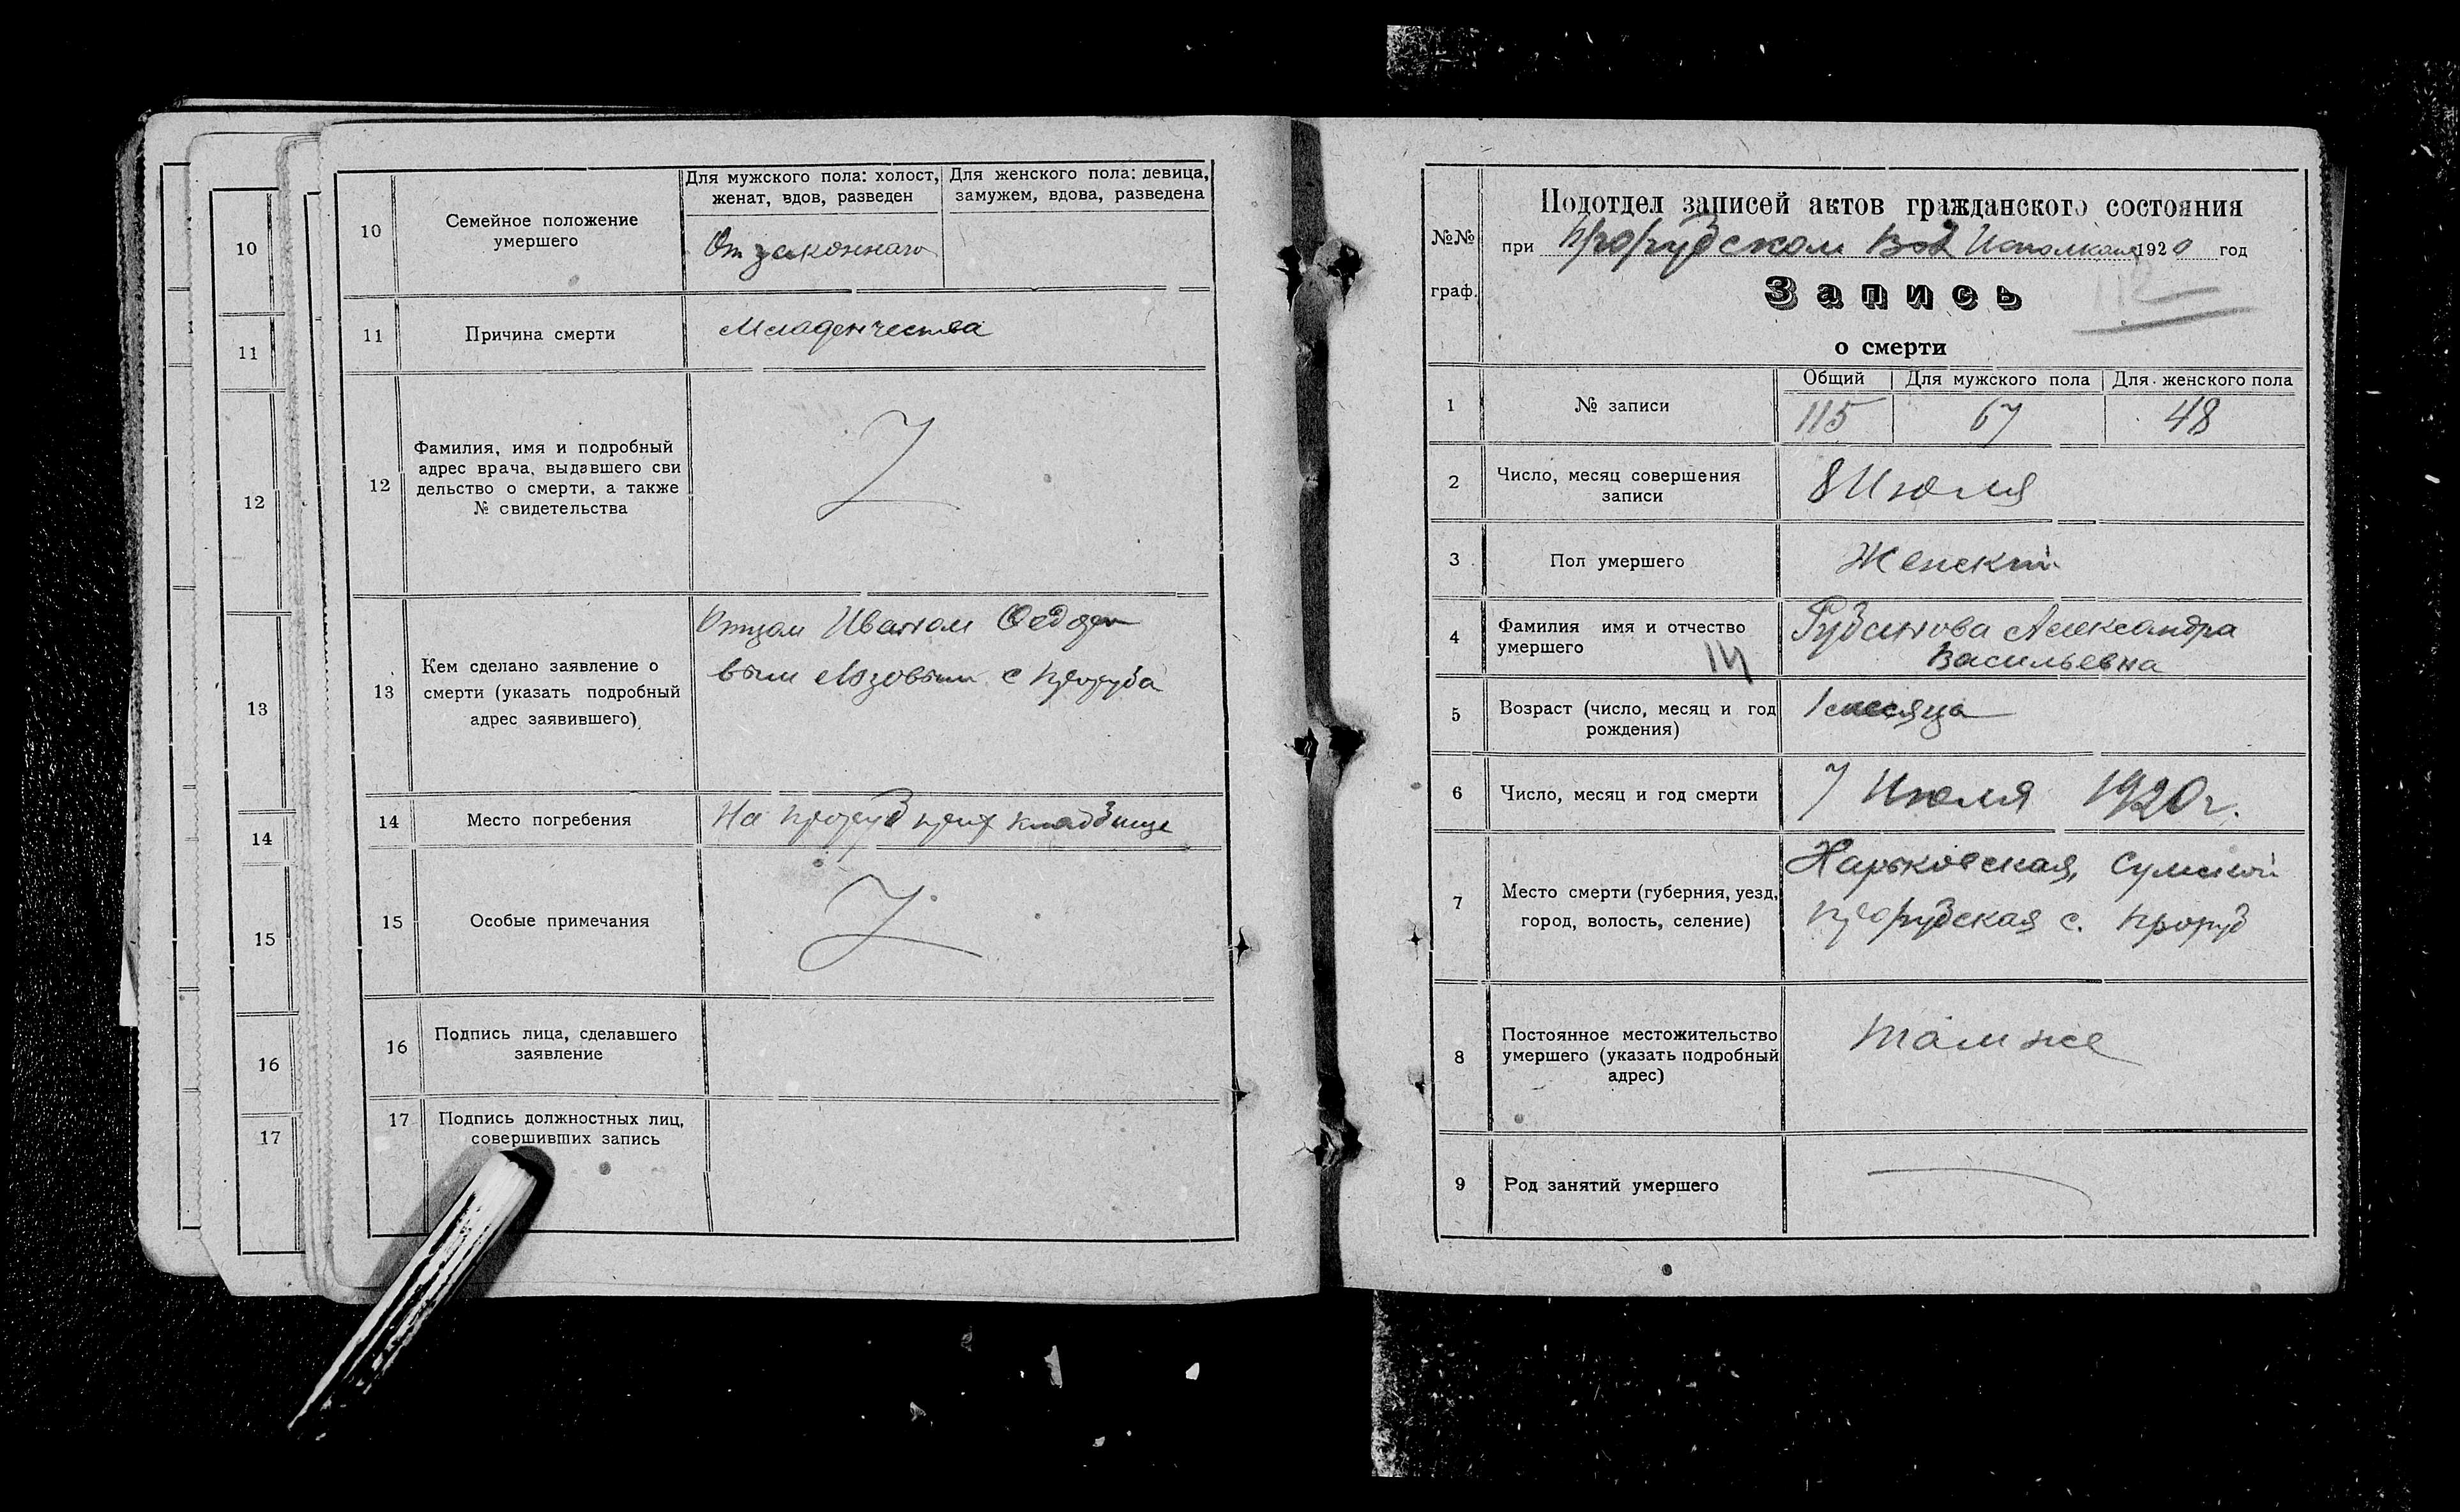 10
11
12
13
14
15
16
17
10
Семейное положение
умершего
Для мужского пола: холост,
женат, вдов, разведен
Для женского пола: девица,
замужем, вдова, разведена
От законнаго
11
Причина смерти
Младенчества
12
Фамилия, имя и подробный
адрес врача, выдавшего сви
дельство о смерти, а также
№ свидетельства
13
Кем сделано заявление о
смерти (указать подробный
адрес заявившего)
Отцом Иваном Федоро
вым Лозовым с Проруба
14
Место погребения
На Проруб прих кладбище
15
Особые примечания
16
Подпись лица, сделавшего
заявление
17
Подпись должностных лиц,
совершивших запись
№№
граф.
Подотдел записей актов гражданского состояния
при Прорубском Вол Исполкоме 1920 год
112
Запись
о смерти
1
№ записи
Общий
Для мужского пола
Для женского пола
115
67
48
2
Число, месяц совершения
записи
8 Июля
3
Пол умершего
Женский
4
Фамилия имя и отчество
умершего
14
Александра
Васильевна
5
Возраст (число, месяц и год
рождения)
1 месяца
6
Число, месяц и год смерти
7 Июля 1920 г.
7
Место смерти (губерния, уезд,
город, волость, селение)
Харьковская, Сумский
Прорубская с. Проруб
8
Постоянное местожительство
умершего (указать подробный
адрес)
там же
9
Род занятий умершего